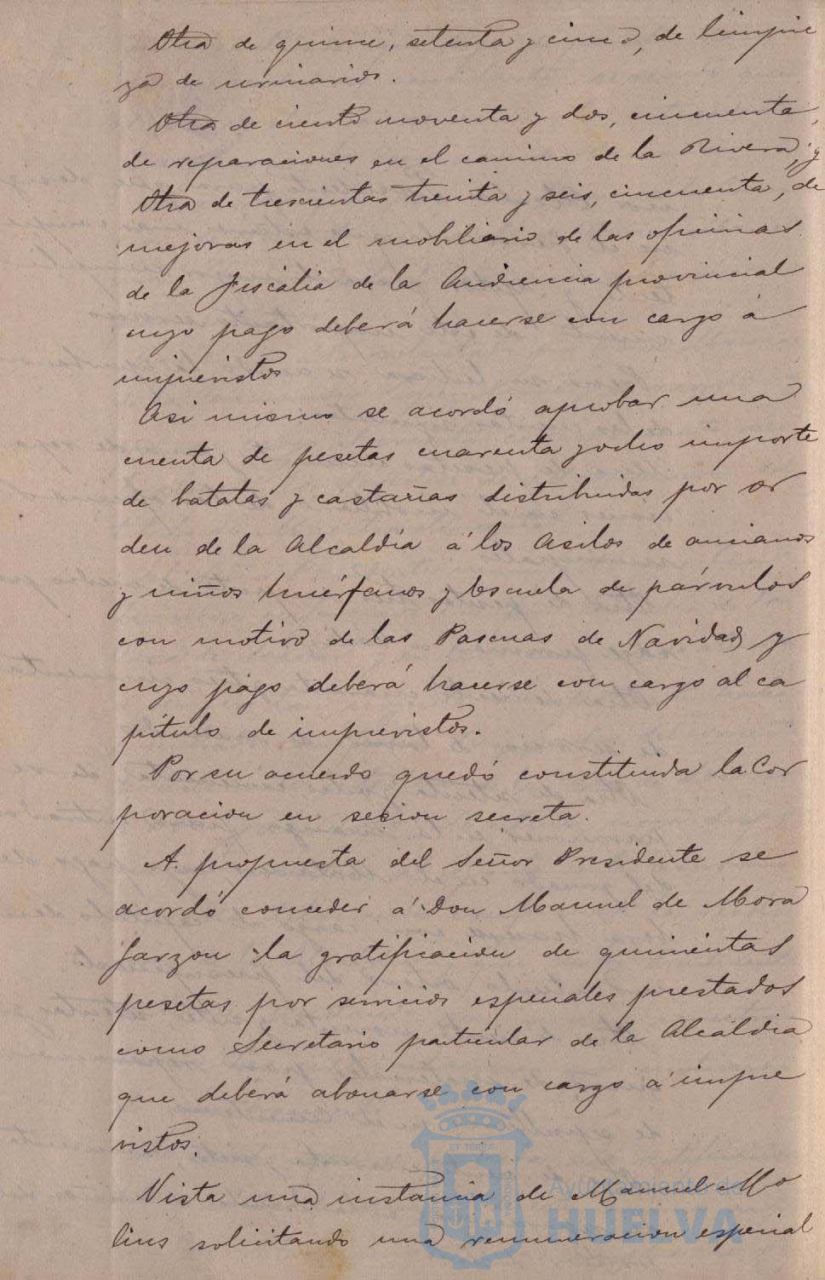 Otra de quince, setenta y cinco, de limpie
za de urinarios.
Otra de ciento noventa y dos, cincuenta,
de reparaciones en el camino de la Rivera; y
Otra de trescientas treinta y seis, cincuenta, de
mejoras en el mobiliario de las oficinas
de la Fiscalia de la Audiencia provincial
cuyo pago deberá hacerse con cargo á
imprevistos
Asi mismo se acordó aprobar una
cuenta de pesetas cuarenta y ocho importe
de batatas y castañas distribuidas por or
den de la Alcaldía á los Asilos de ancianos
y niños huérfanos y Escuela de párvulos
con motivo de las Pascuas de Navidad y
cuyo pago deberá hacerse con cargo al ca
pítulo de imprevistos.
Por su acuerdo quedó constituida la Cor
poracion en sesion secreta.
A propuesta del Señor Presidente se
acordó conceder á Don Manuel de Mora
Garzon la gratificacion de quinientas
pesetas por servicios especiales prestados
como Secretario particular de la Alcaldia
que deberá abonarse con cargo á impre
vistos.
Vista una instancia de Manuel Mo
lins solicitando una remuneracion especial
Ayuntamiento de
HUELVA